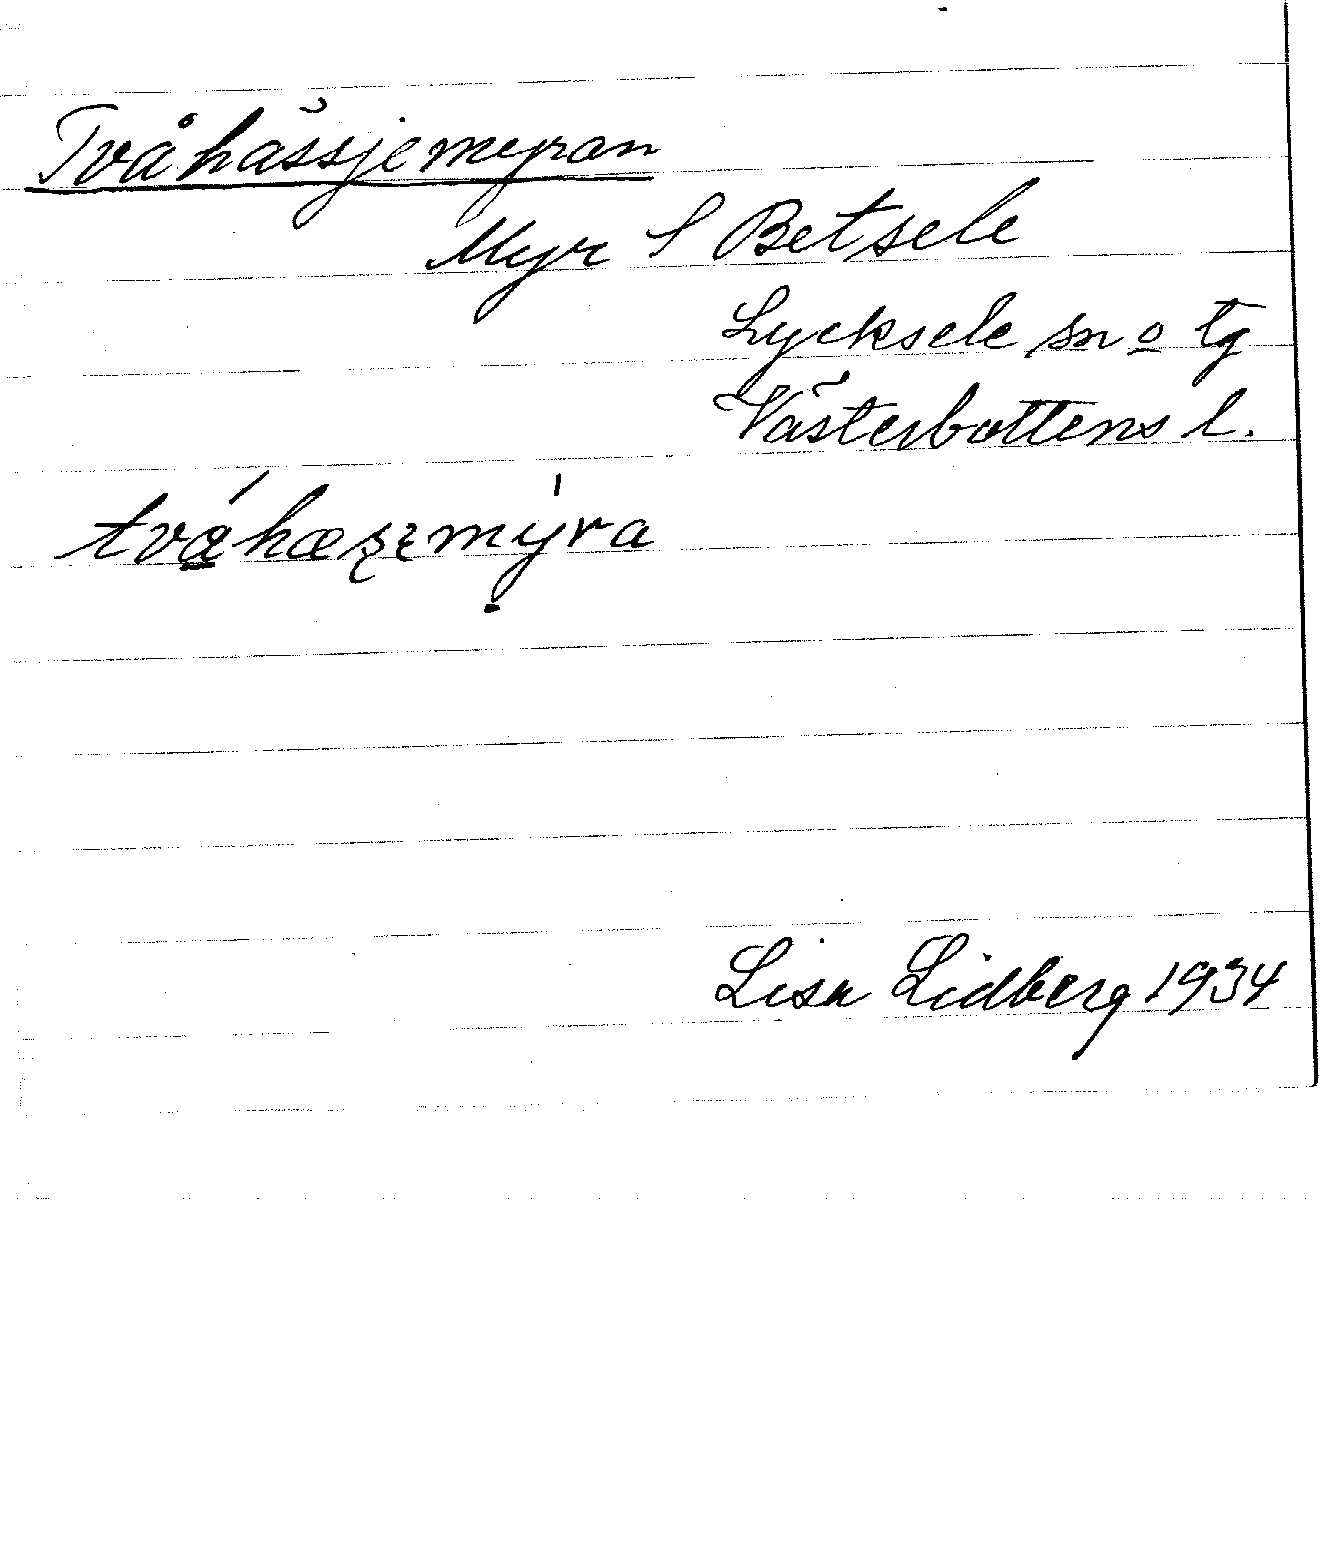 Tvåhässjemyran
Myr S Betsele
Lycksele sn o tg
Västerbottens l.
Lisa Lidberg 1934